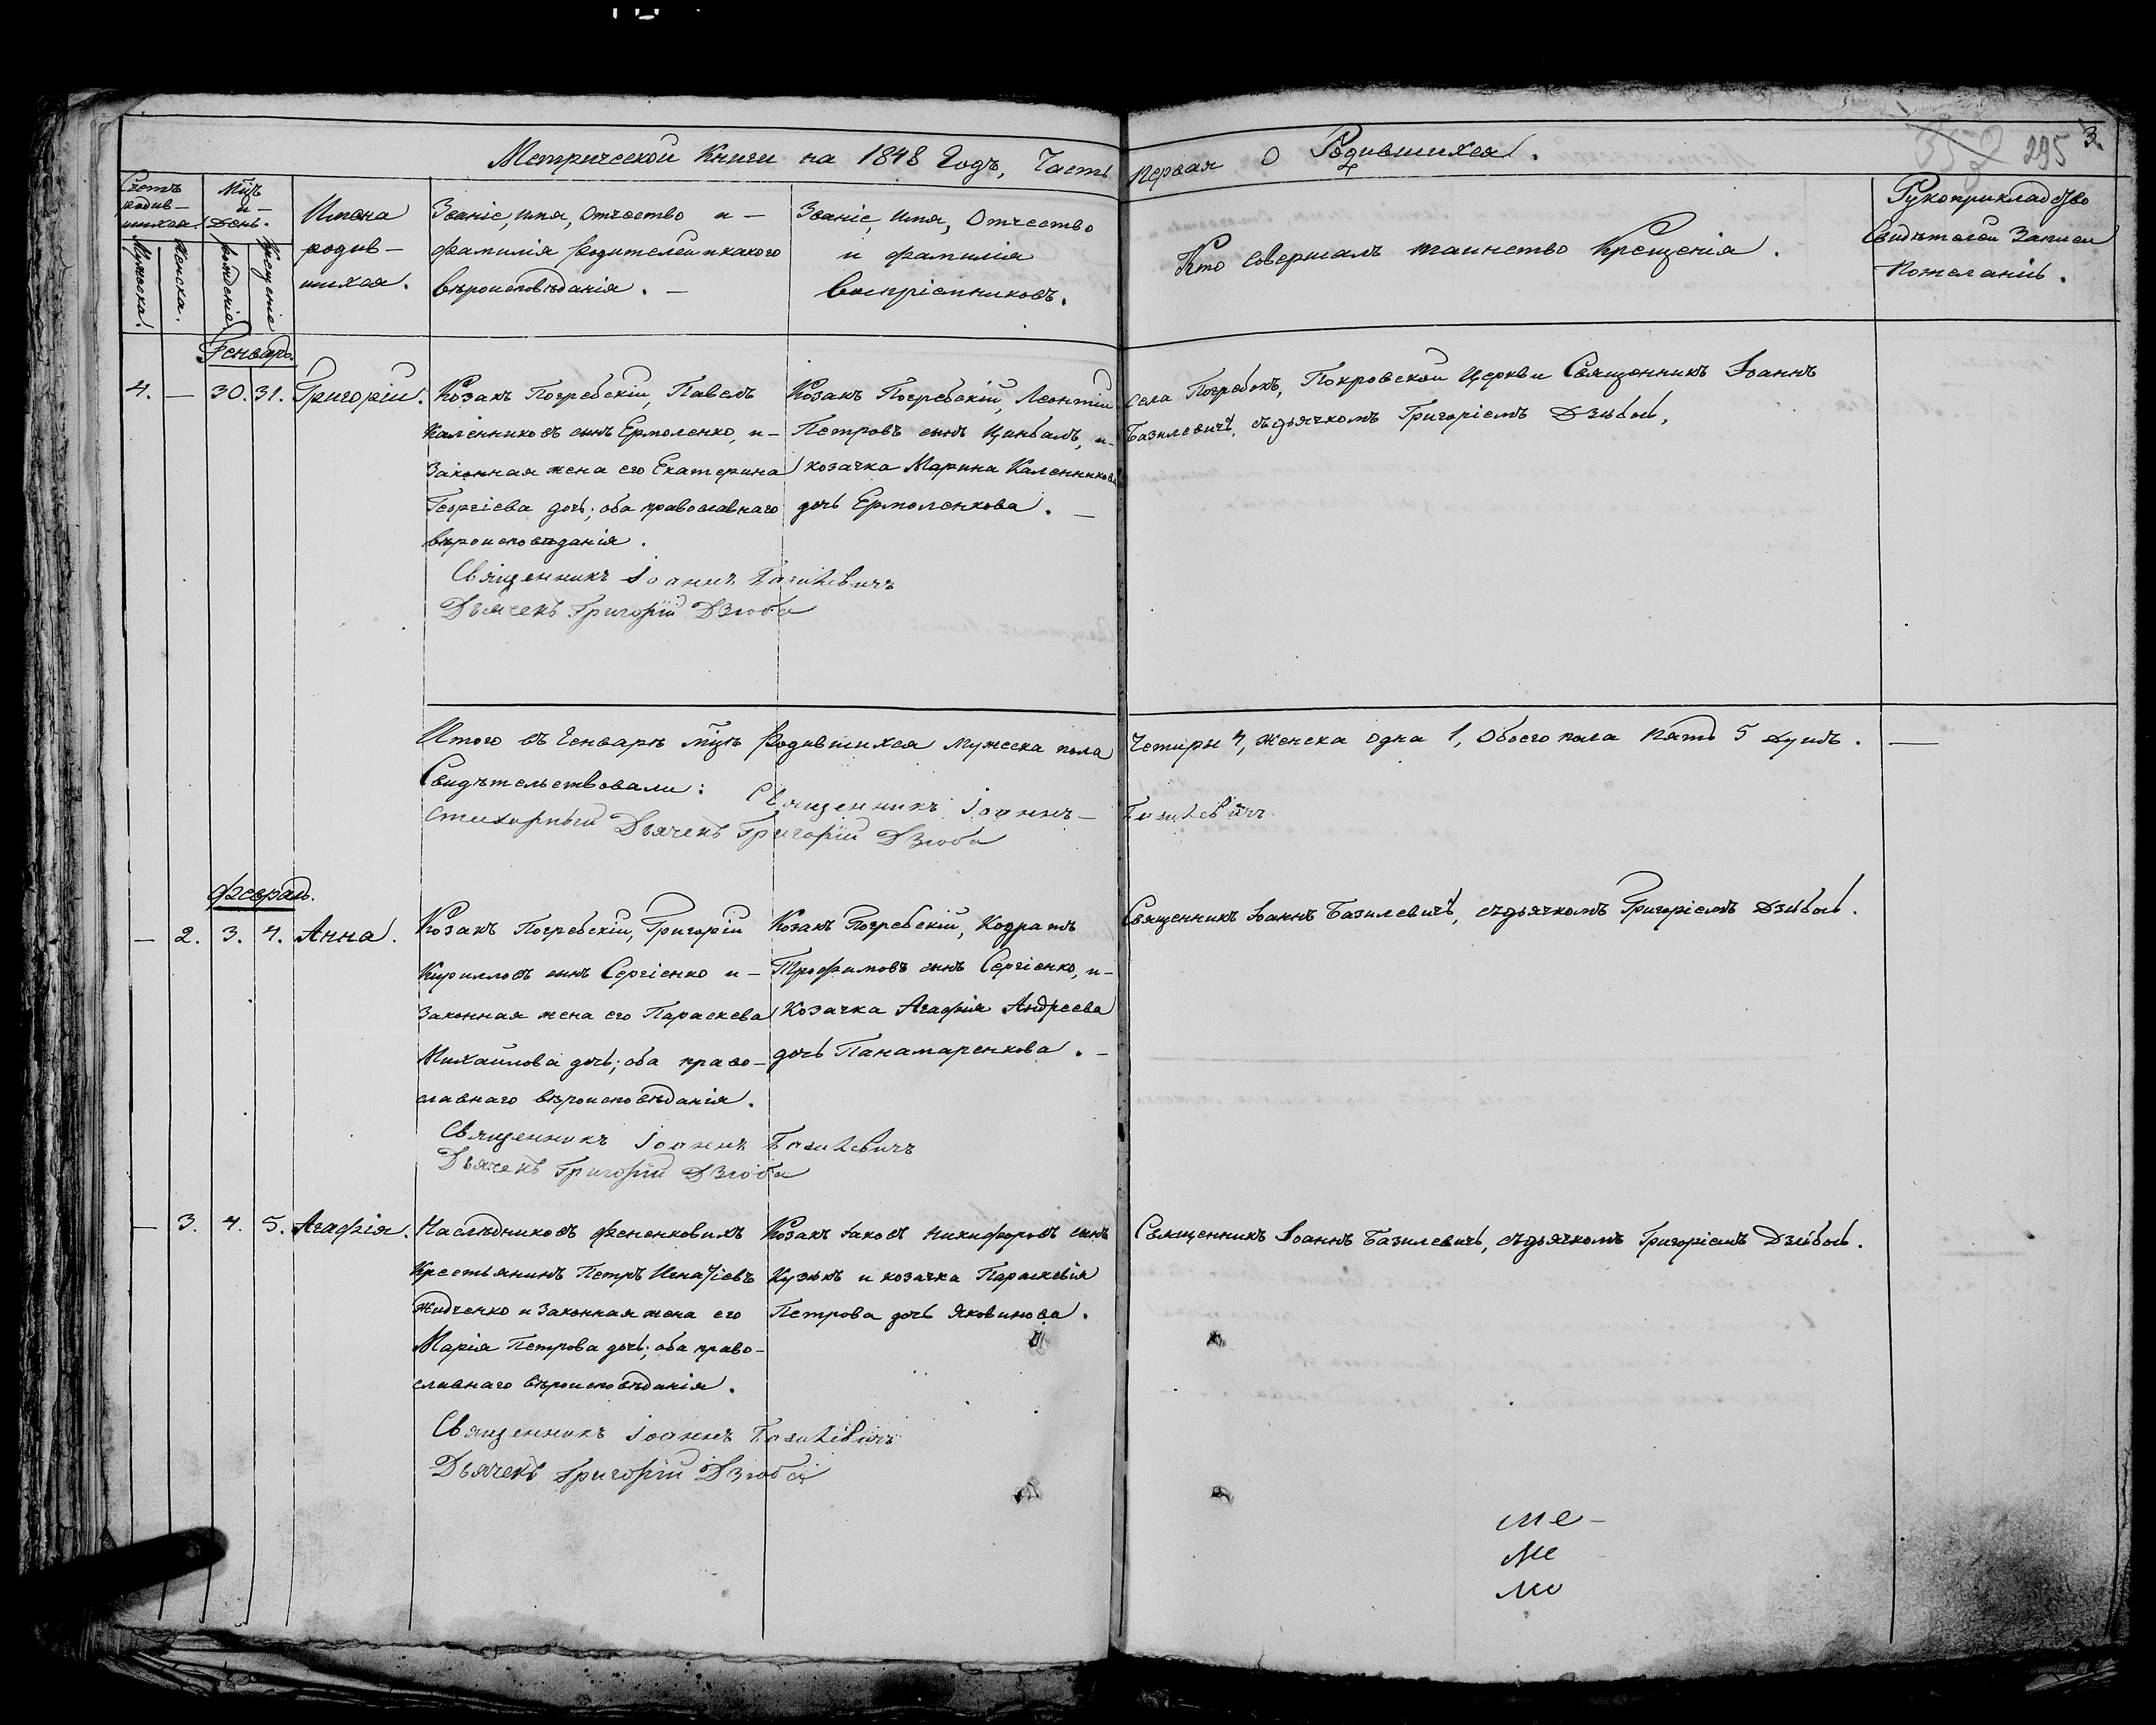 Метрической Книги на 1848 Годъ, Часть первая о Родившихся.
295 3.
Счетъ родив-шихся.
Мужеска.
Женска.
Мцъ и День.
рожденія.
Крещенія
Имена родив-шихся.
Званіе, имя, Отчество и -
фамилія родителей и какого
вѣроисповѣданія. -
Званіе, имя, Отчество
и фамилія
Воспріемниковъ.
Кто Совершалъ таинство Крещенія.
Рукоприкладство
Свидѣтелей Записи
По желанію.
Генварь.
4. — 30. 31. Григорій.
Козакъ Погребскій, Павелъ
Каленниковъ сынъ Ермоленко, и -
Законная жена его Екатерина
Георгіева дочь; оба православнаго
вѣроисповѣданія.
Козакъ Погребскій, Леонтій
Петровъ сынъ Цимбалъ, и -
козачка Марина Каленникова
дочь Ермоленкова. —
Села Погребокъ, Покровской Церкви Священникъ Іоаннъ
Базилевичъ, съ дьячкомъ Григоріемъ Дзюбою.
Священникъ Іоаннъ Базилевичъ
Дьячекъ Григорій Дзюба
Итого въ Генварѣ мцѣ родившихся мужеска пола Четыри 4, женска одна 1, обоего пола пять 5 душъ. —
Свидѣтельствовали: Священникъ Іоаннъ - Базилевичъ
Стихарный Дьячекъ Григорій Дзюба
Февраль.
— 2. 3. 4. Анна.
Козакъ Погребскій, Григорій
Кирилловъ сынъ Сергіенко и -
Законная жена его Параскева
Михайлова дочь; оба право-
славнаго вѣроисповѣданія.
Козакъ Погребскій, Кодратъ
Трофимовъ сынъ Сергіенко, и -
Козачка Агафія Андреева
дочь Панамаренкова. —
Священникъ Іоаннъ Базилевичъ, съ дьячкомъ Григоріемъ Дзюбою.
Священникъ Іоаннъ Базилевичъ
Дьячекъ Григорій Дзюба
— 3. 4. 5. Агафія.
Наслѣдниковъ Фененковыхъ
Крестьянинъ Петръ Игнатіевъ
Жидченко и Законная жена его
Марія Петрова дочь; оба право-
славнаго вѣроисповѣданія.
Козакъ Іаковъ Никифоровъ сынъ
Кузькъ и козачка Параскевія
Петрова дочь Яковинова.
Священникъ Іоаннъ Базилевичъ, съ дьячкомъ Григоріемъ Дзюбою.
Священникъ Іоаннъ Базилевичъ
Дьячекъ Григорій Дзюба
ме -
ме